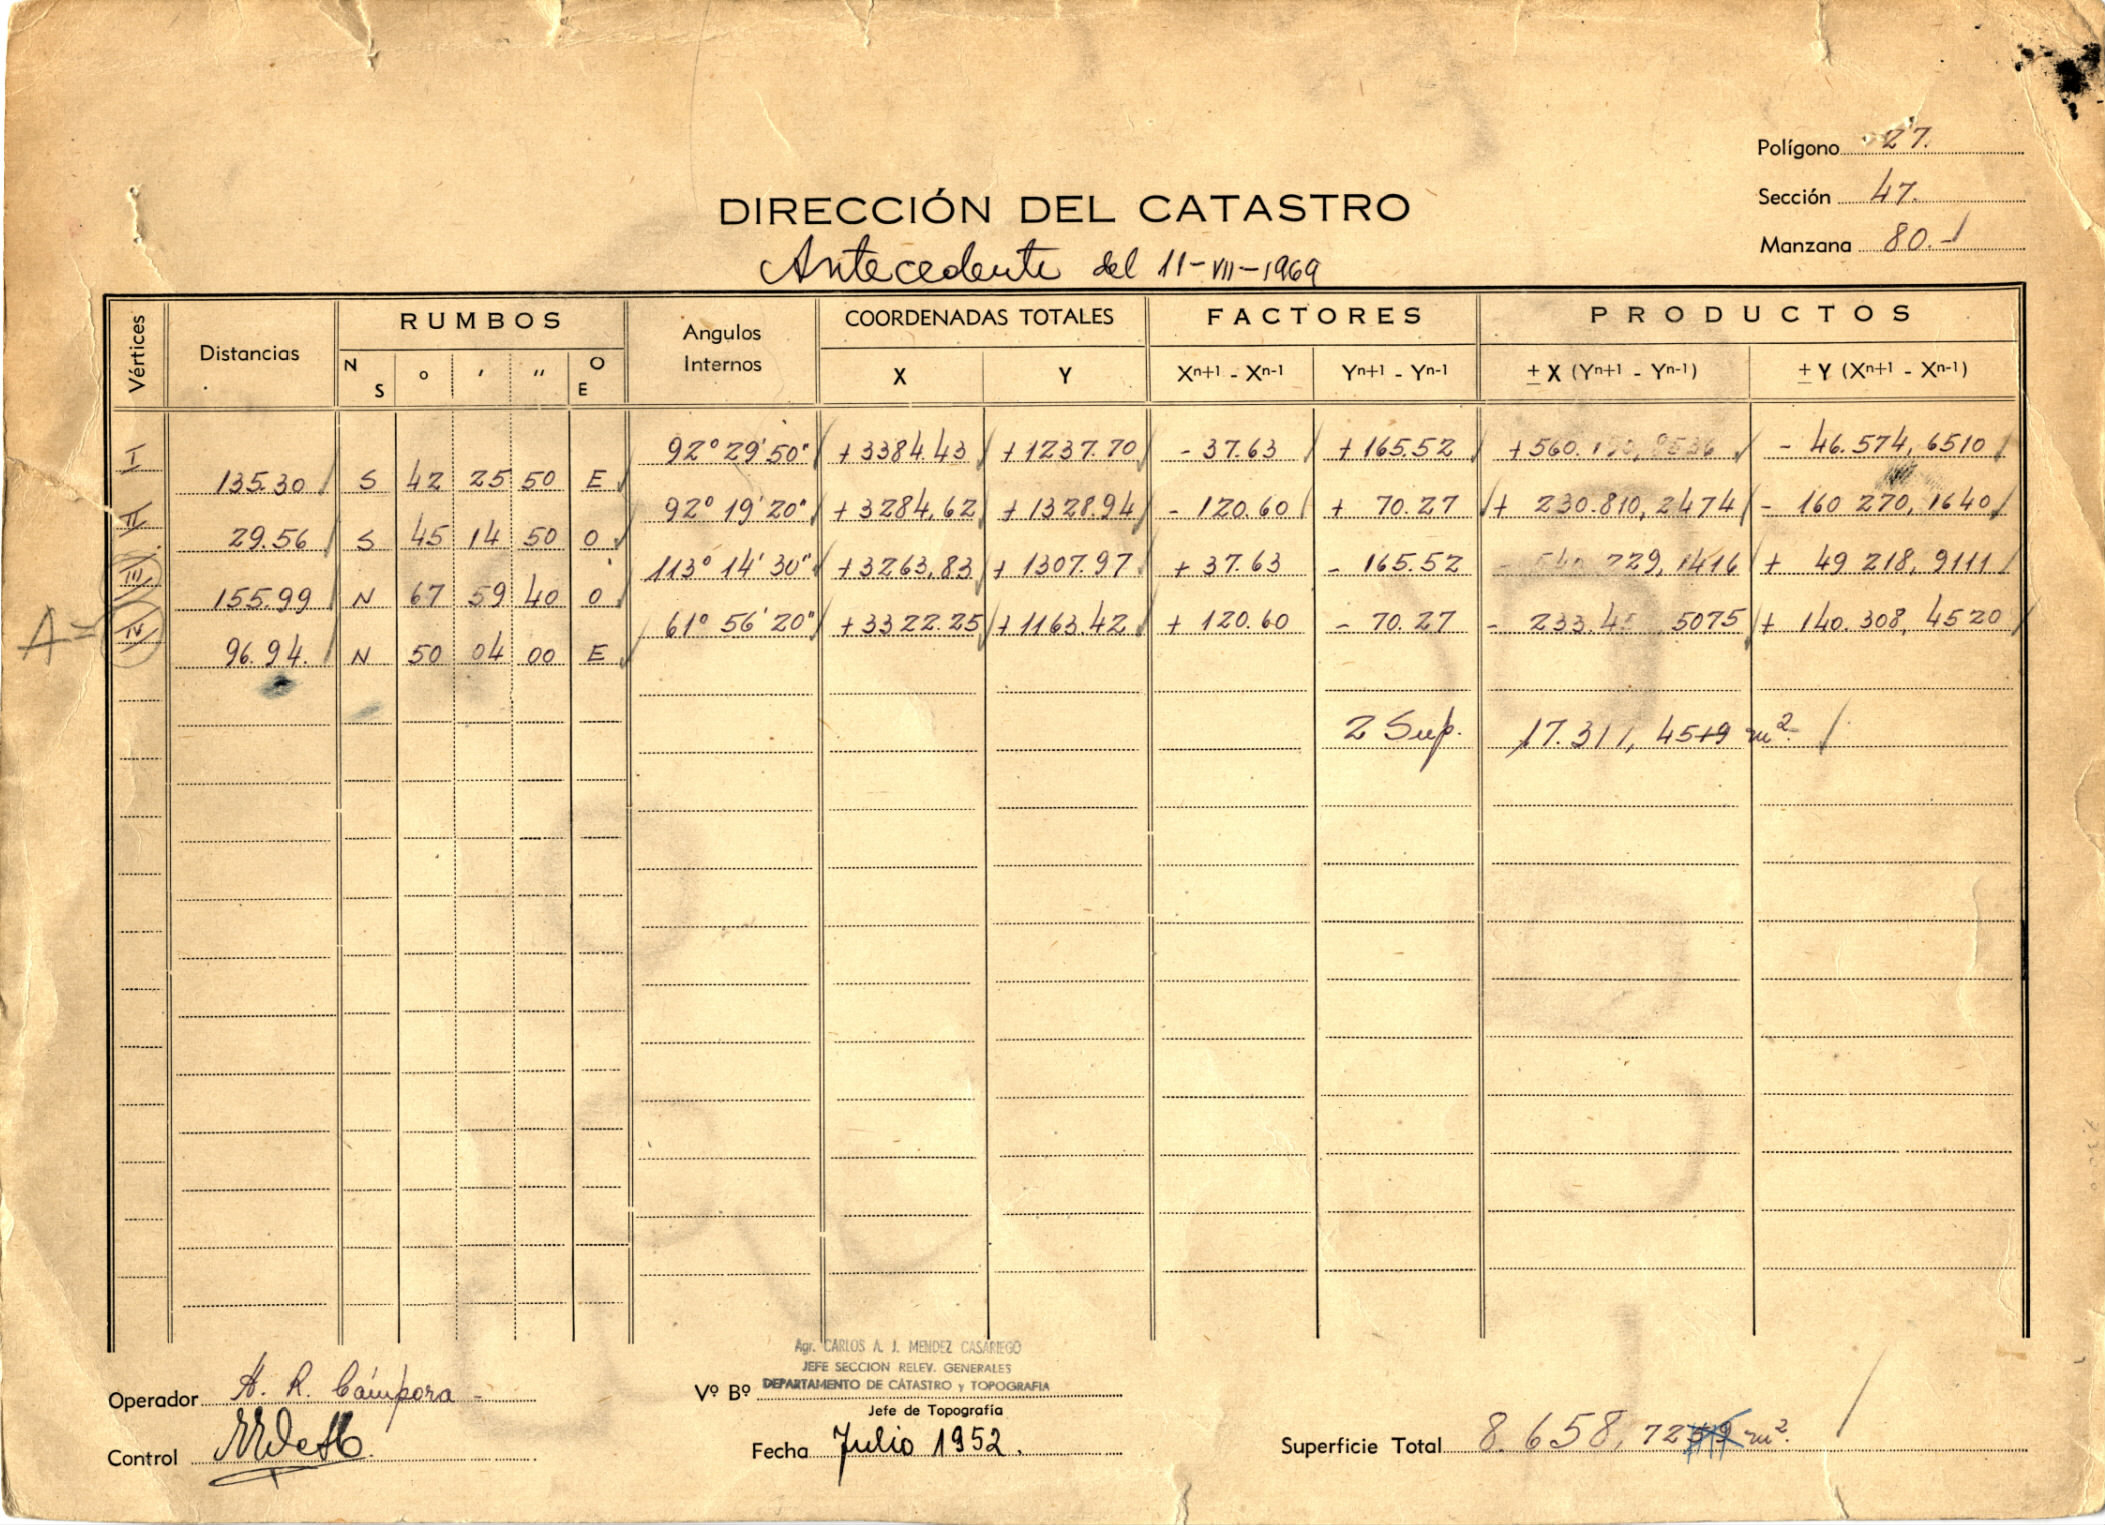 Polígono 27.
Sección 47.
Manzana 80.-
DIRECCIÓN DEL CATASTRO
Antecedente del 11-VII-1969
Vértices Distancias RUMBOS Angulos Internos COORDENADAS TOTALES FACTORES PRODUCTOS
N S o ' " O E X Y Xn+1 - Xn-1 Yn+1 - Yn-1 ± X (Yn+1 - Yn-1) ± Y (Xn+1 - Xn-1)
I 92° 29' 50" +3384.43 +1237.70 - 37.63 +165.52 - 46.574,6510
135.30 S 42 25 50 E
II 92° 19' 20" +3284,62 +1328.94 - 120.60 + 70.27 + 230.810,2474 - 160 270,1640
29.56 S 45 14 50 O
III 113° 14' 30" +3263,83 + 1307.97 + 37.63 - 165.52 + 49 218,9111
155.99 N 67 59 40 O
A= IV 61° 56' 20" +3322.25 +1163.42 + 120.60 - 70.27 + 140.308,4520
96.94. N 50 04 00 E
2 Sup. 17.311, 4519 m².
Agr. CARLOS A. J. MENDEZ CASARIEGO
JEFE SECCION RELEV. GENERALES
DEPARTAMENTO DE CATASTRO y TOPOGRAFIA
Operador A. R. Cámpora - Vº Bº
Jefe de Topografía
Control Fecha Julio 1952. Superficie Total 8.658,72 m².